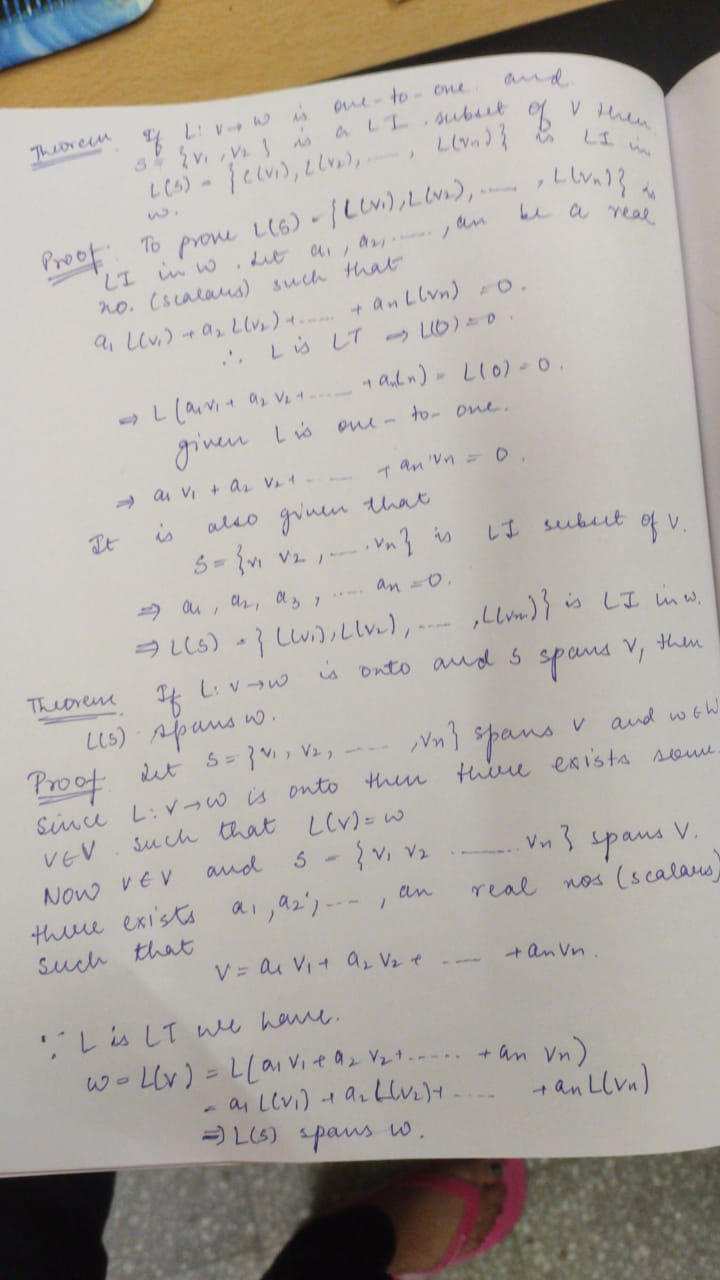 Theorem. If L: V→W is one-to-one and
S = {V1, V2} is a LI subset of V then
L(S) = {L(V1), L(V2), ......, L(Vn)} is LI in
W.
Proof: To prove L(S) = {L(V1), L(V2), ......, L(Vn)} is
LI in W. Let a1, a2, ......, an be a real
no. (scalars) such that
a1 L(V1) + a2 L(V2) + ...... + an L(Vn) = 0.
∴ L is LT ⇒ L(0) = 0.
⇒ L(a1V1 + a2 V2 + ...... + an(n) = L(0) = 0.
given L is one-to-one.
⇒ a1 V1 + a2 V2 + ...... + an Vn = 0.
It is also given that
S = {V1 V2, ...... Vn} is LI subset of V.
⇒ a1, a2, a3, ...... an = 0.
⇒ L(S) = {L(V1), L(V2), ......, L(Vm)} is LI in W.
Theorem. If L: V→W is onto and S spans V, then
L(S) spans W.
Proof Let S = {V1, V2, ......, Vn} spans V and w∈W
Since L: V→W is onto then there exists some
V∈V such that L(V) = W
Now V∈V and S = {V1 V2 ...... Vn} spans V.
there exists a1, a2, ......, an real nos (scalars)
such that
V = a1 V1 + a2 V2 + ...... + an Vn.
∵ L is LT we have.
W = L(V) = L(a1 V1 + a2 V2 + ...... + an Vn)
= a1 L(V1) + a2 L(V2) + ...... + an L(Vn)
⇒ L(S) spans W.